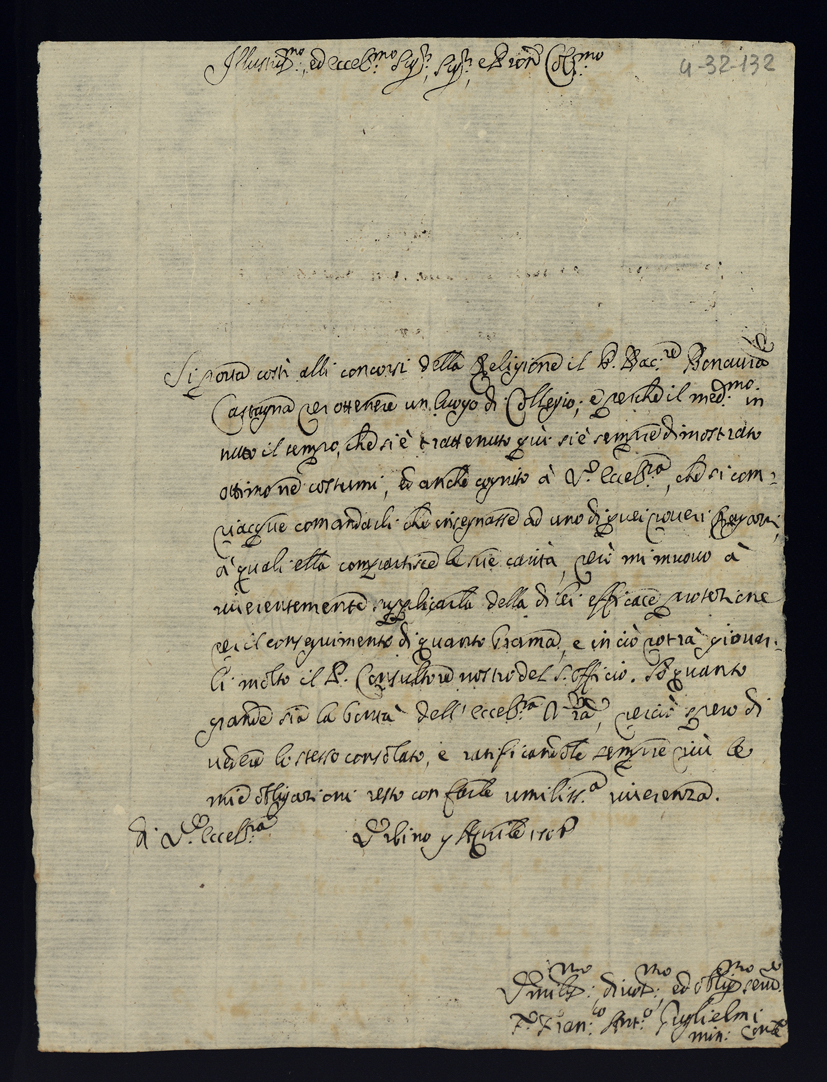 Illustr:mo, ed eccel:mo Sig:r, Sig:r, e Pron Col:mo
4-32-132
Si porta costì alli concorsi della Religione il P. Bac:re Bonaura
Castagna per ottenere un luogo di Collegio; e perche il med:mo in
tutto il tempo, che si è trattenuto quì si è sempre dimostrato
ottimo ne costumi, ed anche cognito à V. Eccel:za, che si com-
piacque comandarli che insegnasse ad uno di quei poueri
à quali ella compartisce le sue carità, però mi muouo à
riuerentemente supplicarla della di lei efficace protezione
per il conseguimento di quanto brama, e in ciò potrà giouar-
li molto il P. Consultore nostro del S. Officio. Sò quanto
grande sia la bontà dell'Eccel:za V:ra, perciò spero di
vedere lo stesso consolato, e ratificandole sempre più le
mie obligazioni resto con farle umiliss:a riuerenza.
di V. Eccel:za Vrbino 9 Aprile
Vmil:mo, diuot:mo, ed oblig:mo seru:
F. Fran:co Ant:o Guglielmi
min: Con:le